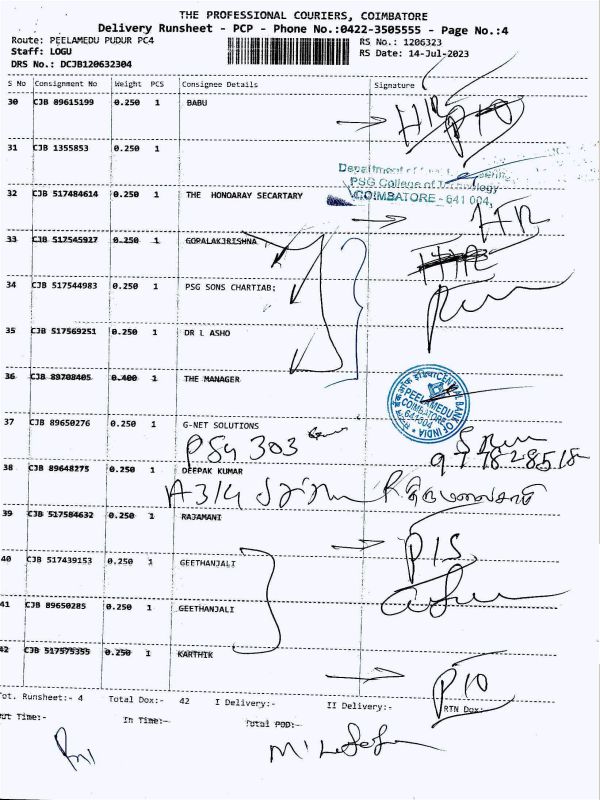 THE PROFESSIONAL COURIERS, COIMBATORE
Delivery Runsheet - PCP - Phone No.:0422-3505555 - Page No.:4
Route: PEELAMEDU PUDUR PC4 RS No.: 1206323
Staff: LOGU RS Date: 14-Jul-2023
DRS No.: DCJB120632304
S No Consignment No Weight PCS Consignee Details Signature
30 CJB 89615199 0.250 1 BABU
P10
31 CJB 1355853 0.250 1
Department of
PSG College of Technology
COIMBATORE - 641 004,
32 CJB 517484614 0.250 1 THE HONOARAY SECARTARY
33 CJB 517545927 0.250 1 GOPALAKJRISHNA
34 CJB 517544983 0.250 1 PSG SONS CHARTIAB;
35 CJB 517569251 0.250 1 DR L ASHO
36 CJB 89708405 0.400 1 THE MANAGER
CENTRAL BANK OF INDIA
PEELAMEDU
COIMBATORE
641004
37 CJB 89650276 0.250 1 G-NET SOLUTIONS
PSG 303
38 CJB 89648275 0.250 1 DEEPAK KUMAR
A3/4
39 CJB 517584632 0.250 1 RAJAMANI
P15
40 CJB 517439153 0.250 1 GEETHANJALI
41 CJB 89650285 0.250 1 GEETHANJALI
42 CJB 517575355 0.250 1 KARTHIK
P10
Tot. Runsheet:- 4 Total Dox:- 42 I Delivery:- II Delivery:- RTN Dox:-
Out Time:- In Time:- Total POD:-